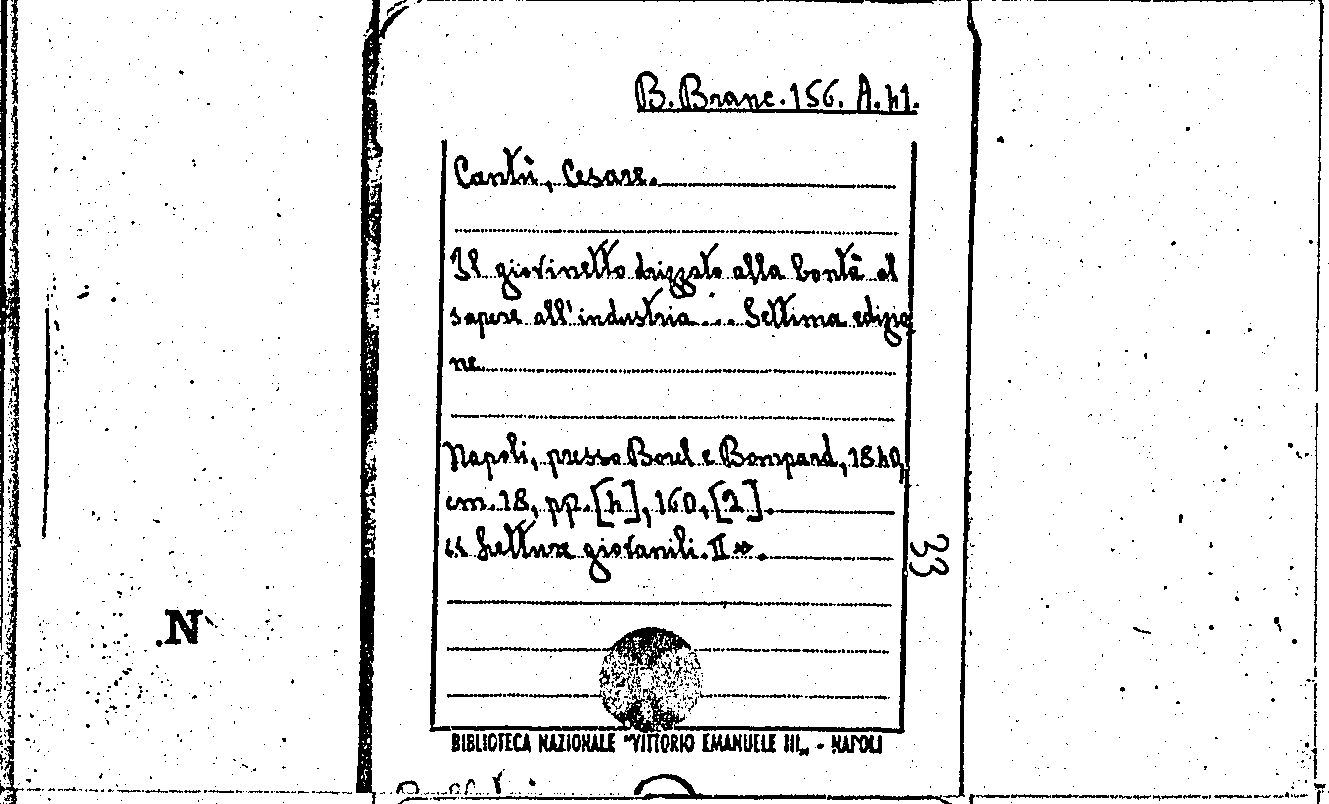 B. Branc. 156. A. 41.
Cantù, Cesare.
Il giovinetto drizzato alla bontà al
sapere all'industria ... Settima edizio
ne
Napoli, presso Borel e Bompard, 1840,
cm. 18, pp. [4], 160, [2].
«Letture giovanili. II».
33
N
BIBLIOTECA NAZIONALE "VITTORIO EMANUELE III„ - NAPOLI